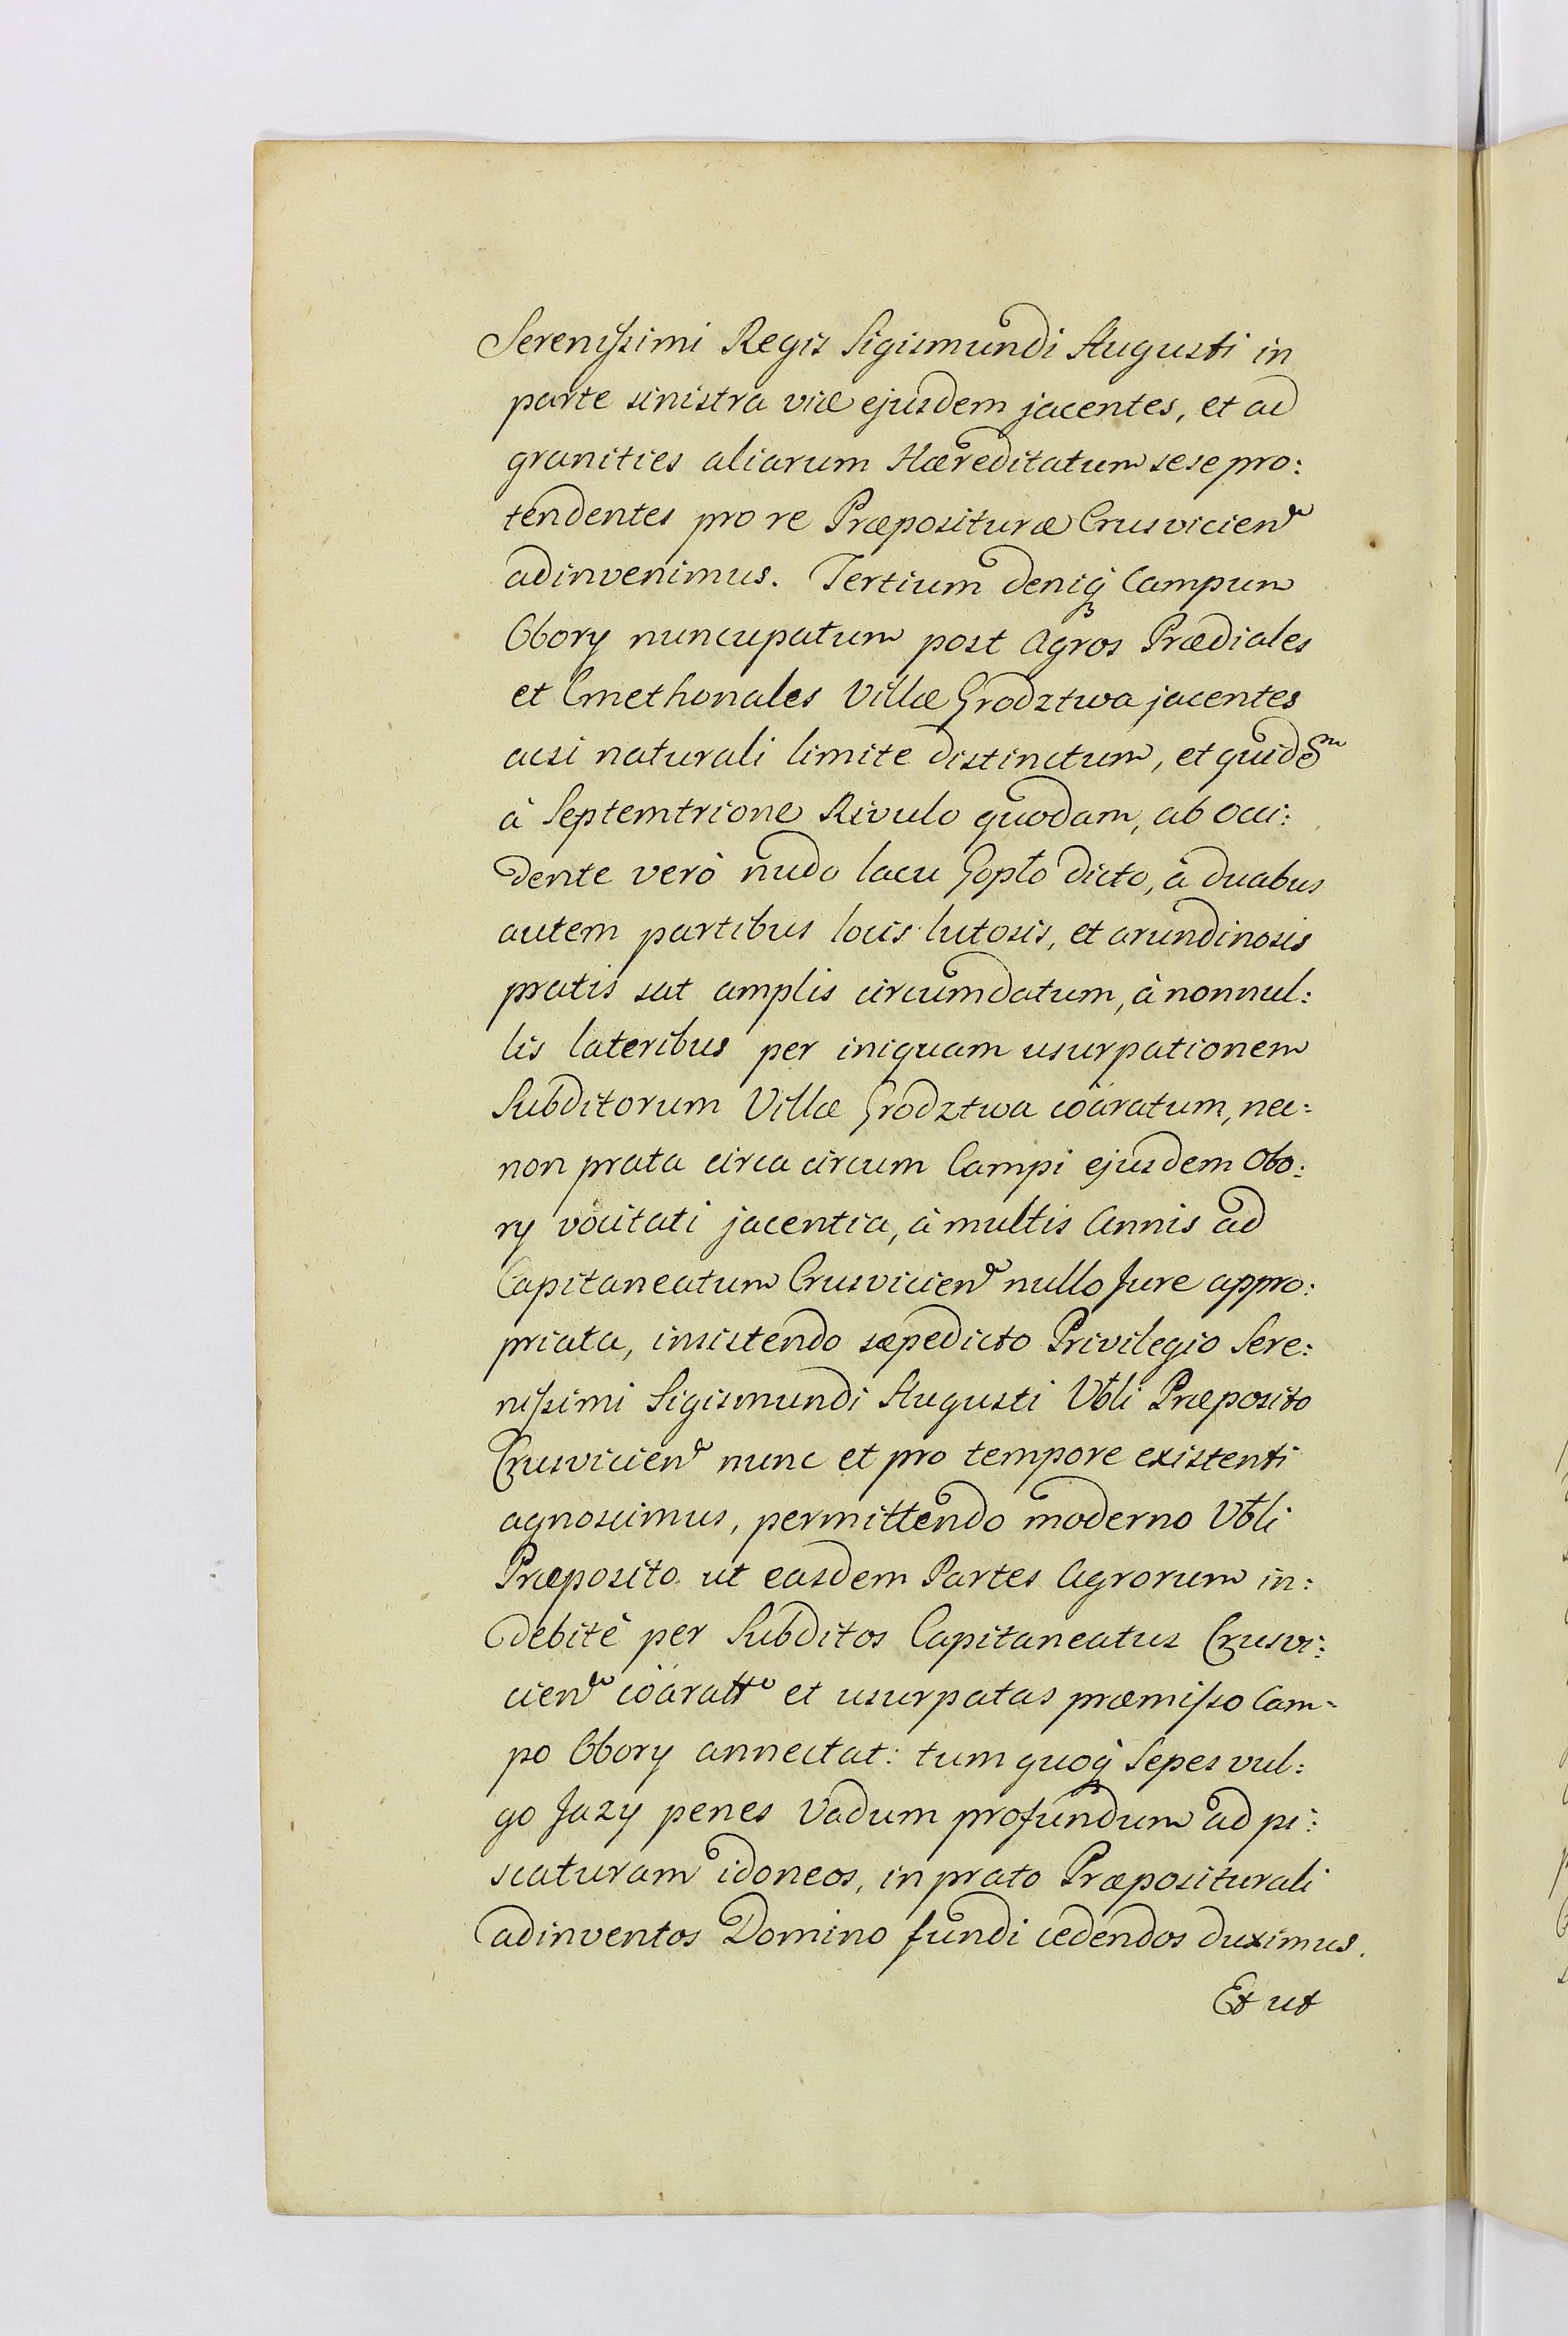 Serenissimi Regis Sigismundi Augusti in
parte sinistra viæ ejusdem jacentes, et ad
granities aliarum Hæreditatum sese pro:
tendentes pro re Præposituræ Crusvicien
adinvenimus. Tertium deniq́ Campum
Obory nuncupatum post Agros Prædiales
et Cmethonales Villæ Grodztwa jacentes
acsi naturali limite distinctum, et quidem
à Septemtrione Rivulo quodam, ab occi:
dente verò nudo lacu Gopło dicto, à duabus
autem partibus locis lutosis, et arundinosis
pratis sat amplis circumdatum, à nonnul:
lis lateribus per iniquam usurpationem
Subditorum Villæ Grodztwa coäratum, nec=
non prata circa circum Campi ejusdem Obo:
ry vocitati jacentia, à multis Annis ad
Capitaneatum Crusvicien nullo Jure appro:
priata, insistendo sæpedicto Privilegio Sere:
nissimi Sigismundi Augusti Vbli Præposito
Crusvicien nunc et pro tempore existenti
agnoscimus, permittendo moderno Vbli
Præposito ut easdem Partes Agrorum in:
debitè per Subditos Capitaneatus Crusvi:
cien coäratt et usurpatas præmisso Cam=
po Obory annectat: tum quoq́ Sepes vul:
go Jazy penes Vadum profundum ad pi:
scaturam idoneos, in prato Præpositurali
adinventos Domino fundi cedendos duximus.
Et ut